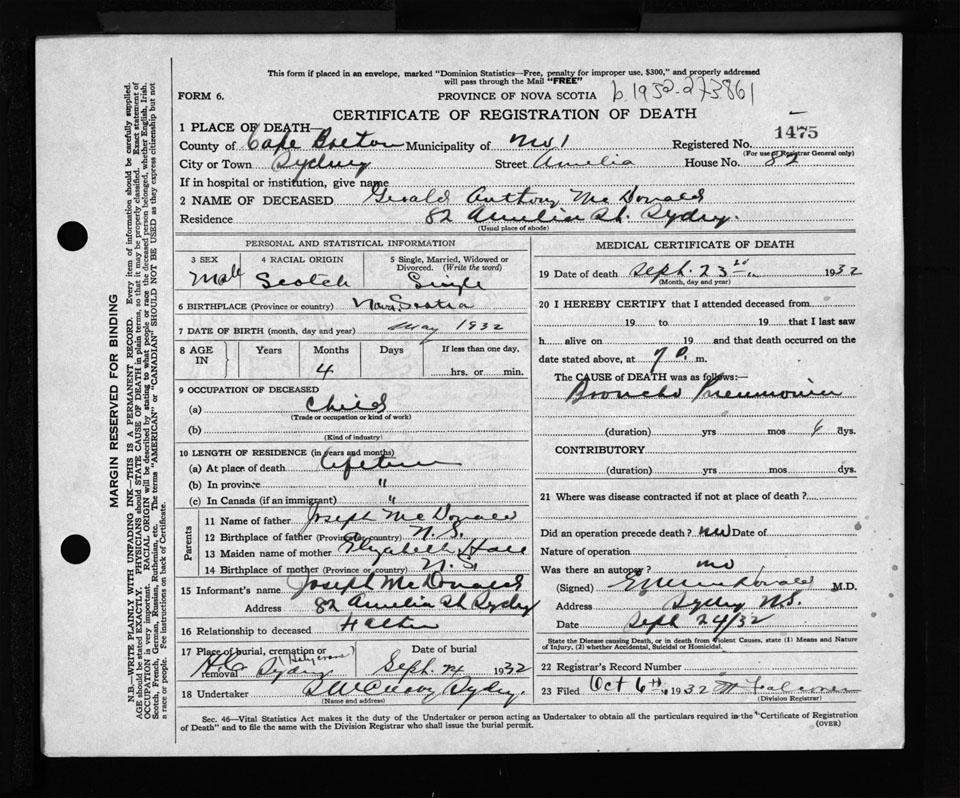 This form if placed in an envelope, marked "Dominion Statistics—Free, penalty for improper use, $300," and properly addressed
will pass through the Mail "FREE"
FORM 6.
PROVINCE OF NOVA SCOTIA b. 1932-273861
CERTIFICATE OF REGISTRATION OF DEATH
1 PLACE OF DEATH—
1475
County of Cape Breton Municipality of No 1 Registered No.
(For use of Registrar General only)
City or Town Sydney Street Amelia House No. 82
If in hospital or institution, give name
2 NAME OF DECEASED Gerald Anthony McDonald
Residence 82 Amelia St. Sydney.
(Usual place of abode)
PERSONAL AND STATISTICAL INFORMATION
3 SEX 4 RACIAL ORIGIN 5 Single, Married, Widowed or
Divorced. (Write the word)
Male Scotch Single
6 BIRTHPLACE (Province or country) Nova Scotia
7 DATE OF BIRTH (month, day and year) May 1932
8 AGE IN Years Months Days If less than one day.
4 hrs. or min.
9 OCCUPATION OF DECEASED
(a) Child
(Trade or occupation or kind of work)
(b)
(Kind of industry)
10 LENGTH OF RESIDENCE (in years and months)
(a) At place of death lifetime
(b) In province "
(c) In Canada (if an immigrant) "
Parents
11 Name of father Joseph McDonald
12 Birthplace of father (Province or country) N.S.
13 Maiden name of mother Elizabeth
14 Birthplace of mother (Province or country) N.S.
15 Informant's name Joseph McDonald
Address 82 Amelia St Sydney
16 Relationship to deceased Father
17 Place of burial, cremation or removal Date of burial
H.C. Sydney (Holy Cross) Sept. 24 1932
18 Undertaker Sydney.
(Name and address)
MEDICAL CERTIFICATE OF DEATH
19 Date of death Sept. 23rd 1932
(Month, day and year)
20 I HEREBY CERTIFY that I attended deceased from
19 to 19 that I last saw
h alive on 19 and that death occurred on the
date stated above, at 7 P. m.
The CAUSE OF DEATH was as follows:—
Broncho Pneumonia
(duration) yrs mos 6 dys.
CONTRIBUTORY
(duration) yrs mos dys.
21 Where was disease contracted if not at place of death?
Did an operation precede death? no Date of
Nature of operation
Was there an autopsy? no
(Signed) M.D.
Address Sydney N.S.
Date Sept 24/32
State the Disease causing Death, or in death from Violent Causes, state (1) Means and Nature
of Injury, (2) whether Accidental, Suicidal or Homicidal.
22 Registrar's Record Number
23 Filed Oct 6th 1932
(Division Registrar)
Sec. 46—Vital Statistics Act makes it the duty of the Undertaker or person acting as Undertaker to obtain all the particulars required in the "Certificate of Registration
of Death" and to file the same with the Division Registrar who shall issue the burial permit. (OVER)
MARGIN RESERVED FOR BINDING
N.B.—WRITE PLAINLY WITH UNFADING INK—THIS IS A PERMANENT RECORD. Every item of information should be carefully supplied.
AGE should be stated EXACTLY. PHYSICIANS should STATE CAUSE OF DEATH in plain terms, so that it may be properly classified. Exact statement of
OCCUPATION is very important. RACIAL ORIGIN will be described by stating to what people or race the deceased person belonged, whether English, Irish,
Scotch, French, German, Russian, Ruthenian, etc. The terms "AMERICAN" or "CANADIAN" SHOULD NOT BE USED as they express citizenship but not
a race or people. See instructions on back of Certificate.